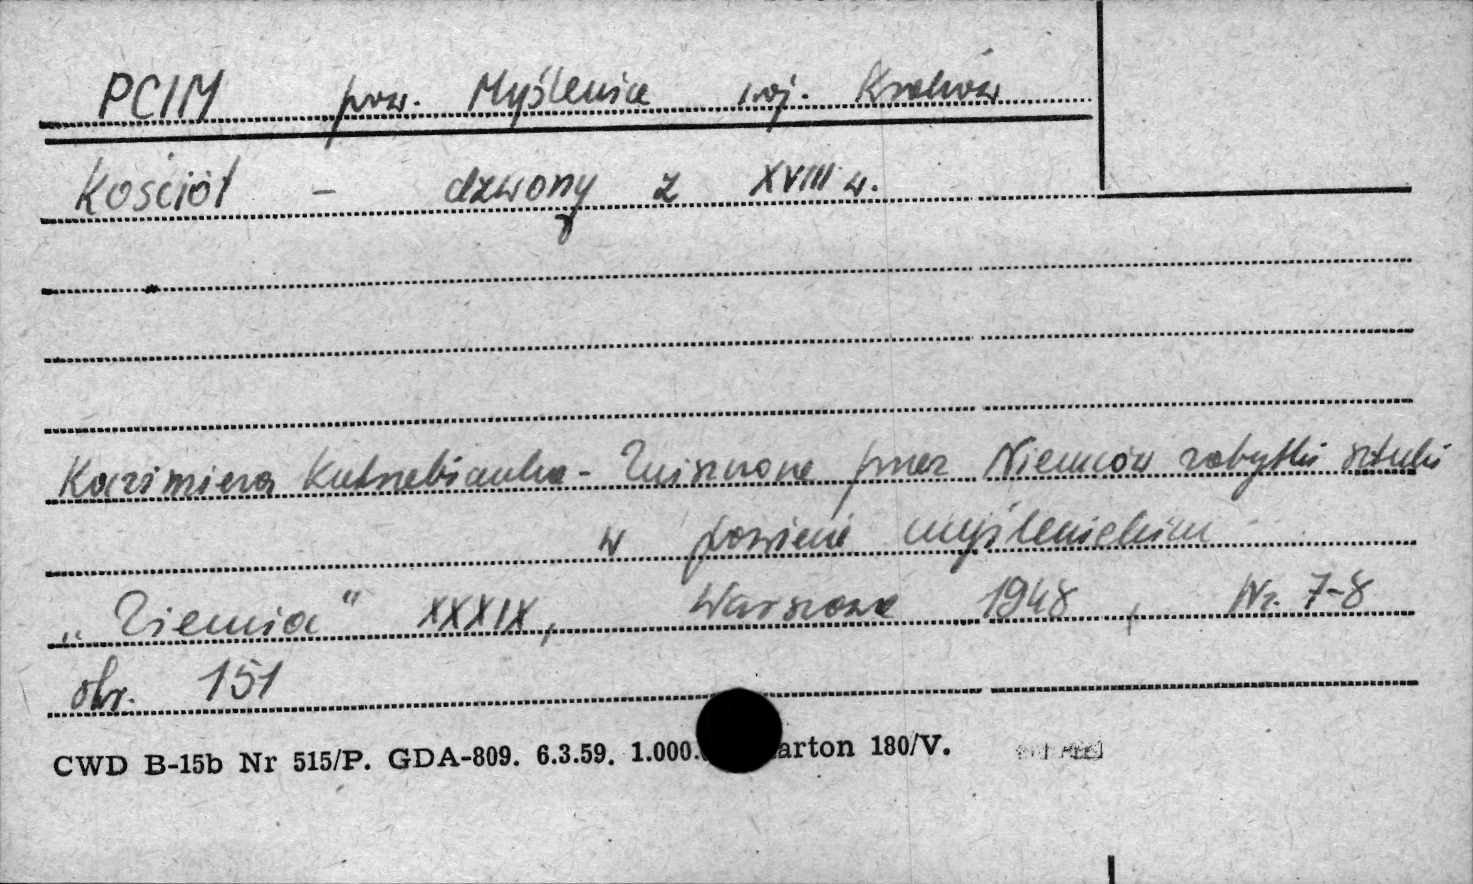 PCIM pow. Myślenice woj. Kraków
Kościół - dzwony z XVIII w.
Kazimiera Kutrzebianka - Zniszczone przez Niemców zabytki sztuki
w powiecie myślenickim
„Ziemia" XXXIX, Warszawa 1948, Nr. 7-8
str. 151
CWD B-15b Nr 515/P. GDA-809. 6.3.59. 1.000. arton 180/V.